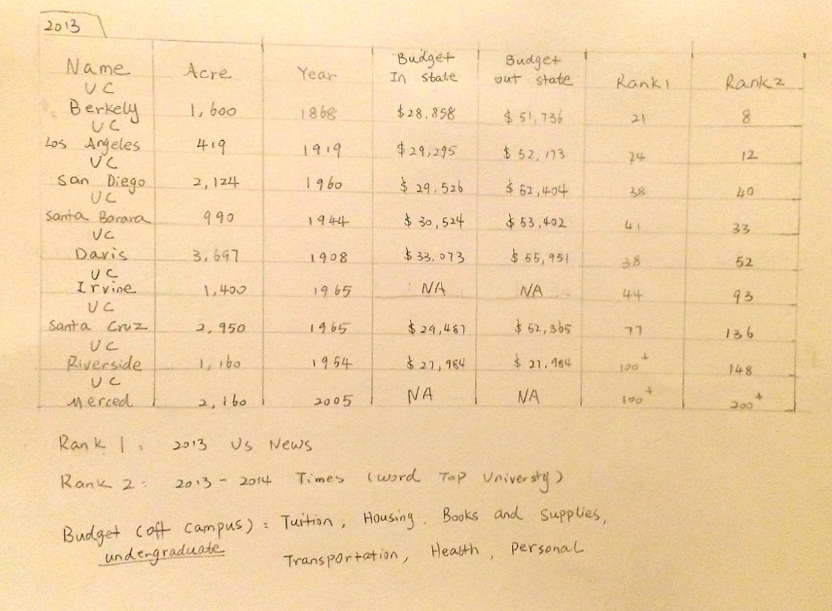 2013
Name Acre Year Budget In state Budget out state Rank1 Rank2
UC Berkely 1,600 1868 $28.858 $51,736 21 8
UC Los Angeles 419 1919 $29,295 $52,173 24 12
UC San Diego 2,124 1960 $29,526 $52,404 38 40
UC Santa Barara 990 1944 $30,524 $53,402 41 33
UC Davis 3,697 1908 $33,073 $55,951 38 52
UC Irvine 1,400 1965 NA NA 44 93
UC Santa Cruz 2,950 1965 $29,487 $52,365 77 136
UC Riverside 1,160 1954 $27,984 $27,984 100+ 148
UC Merced 2,160 2005 NA NA 100+ 200+
Rank 1: 2013 US News
Rank 2: 2013-2014 Times (word Top University)
Budget (off campus): Tuition, Housing. Books and Supplies,
undergraduate Transportation, Health, Personal